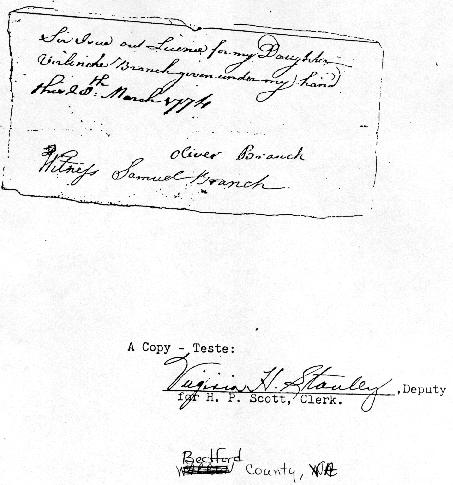 Sir Isue out Licence for my Daughter
Verlinche Branch given under my hand
this 28th March 1774
Oliver Branch
Witness Samuel Branch
A Copy - Teste:
Virginia H. Stanley, Deputy
for H. P. Scott, Clerk.
Bedford
County, VA